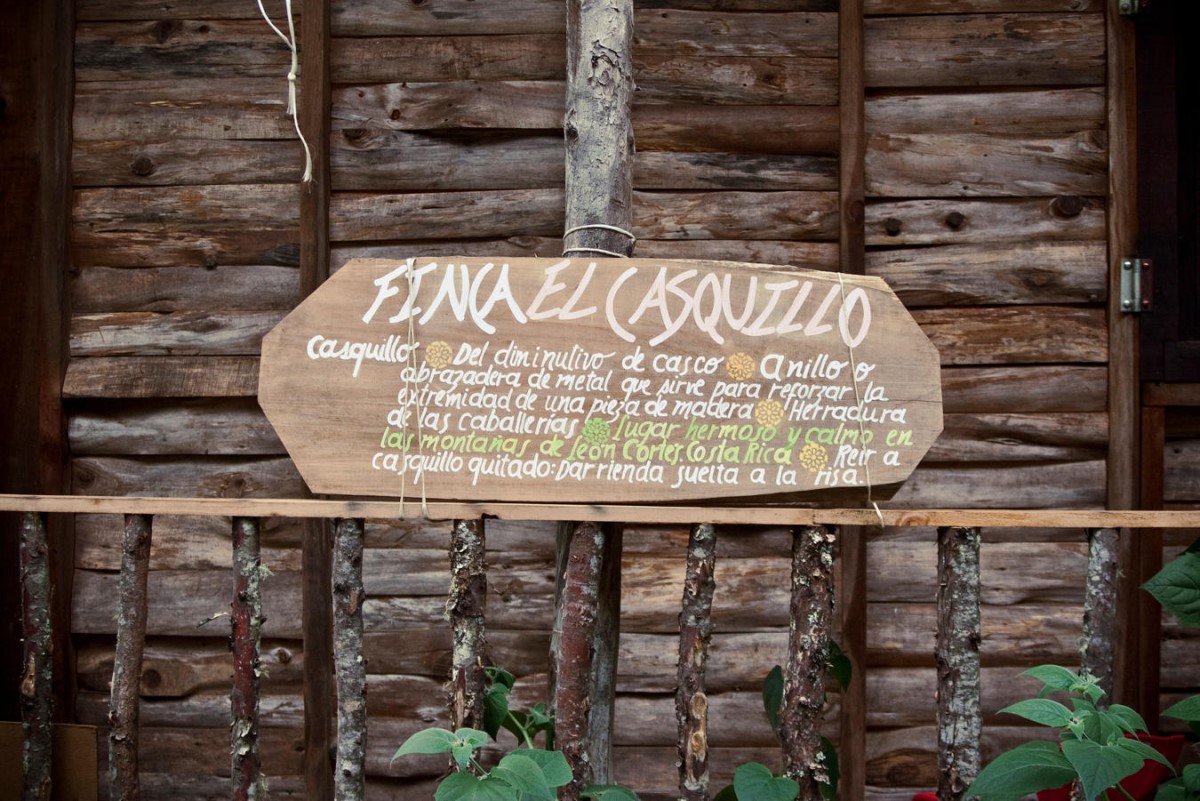 FINCA EL CASQUILLO
casquillo Del diminutivo de casco Anillo o
abrazadera de metal que sirve para reforzar la
extremidad de una pieza de madera Herradura
de las caballerías lugar hermoso y calmo en
las montañas de León Cortés, Costa Rica Reir a
casquillo quitado: Dar rienda suelta a la risa.